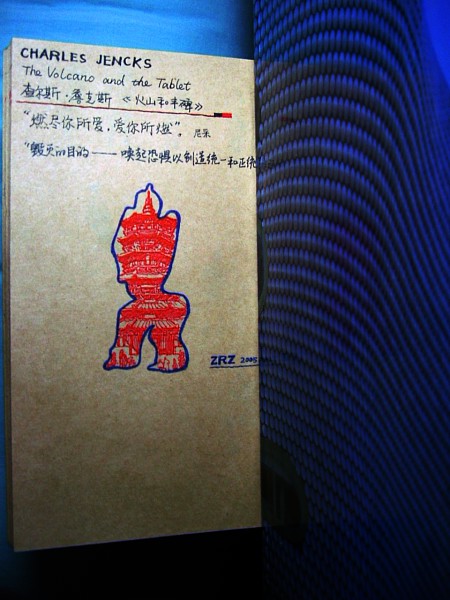 CHARLES JENCKS
The Volcano and the Tablet
查尔斯·詹克斯 《火山和平碑》
"燃尽你所爱,爱你所燃"。 尼采
"毁灭的目的——唤起恐惧以创造统一和正统
ZRZ 2005